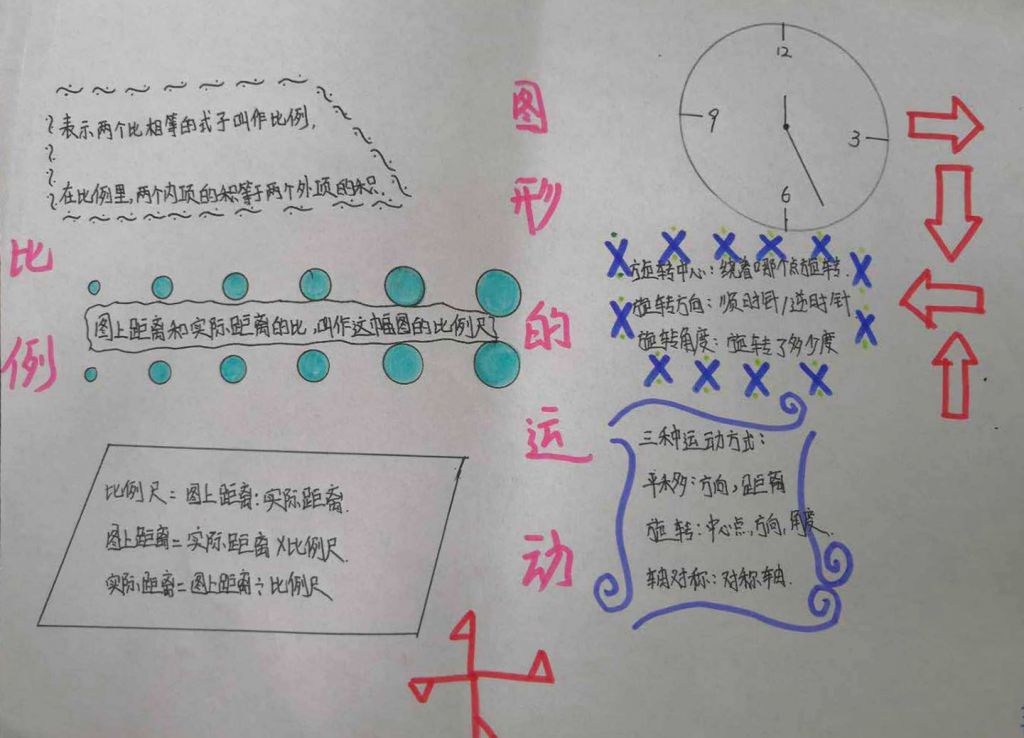 比例
表示两个比相等的式子叫作比例，
在比例里，两个内项的积等于两个外项的积．
图上距离和实际距离的比，叫作这幅图的比例尺
比例尺＝图上距离：实际距离．
图上距离＝实际距离×比例尺
实际距离＝图上距离÷比例尺
图形的运动
12
9
3
6
旋转中心：绕着哪个点旋转．
旋转方向：顺时针/逆时针
旋转角度：旋转了多少度
三种运动方式：
平移：方向，距离
旋转：中心点，方向，角度．
轴对称：对称轴．